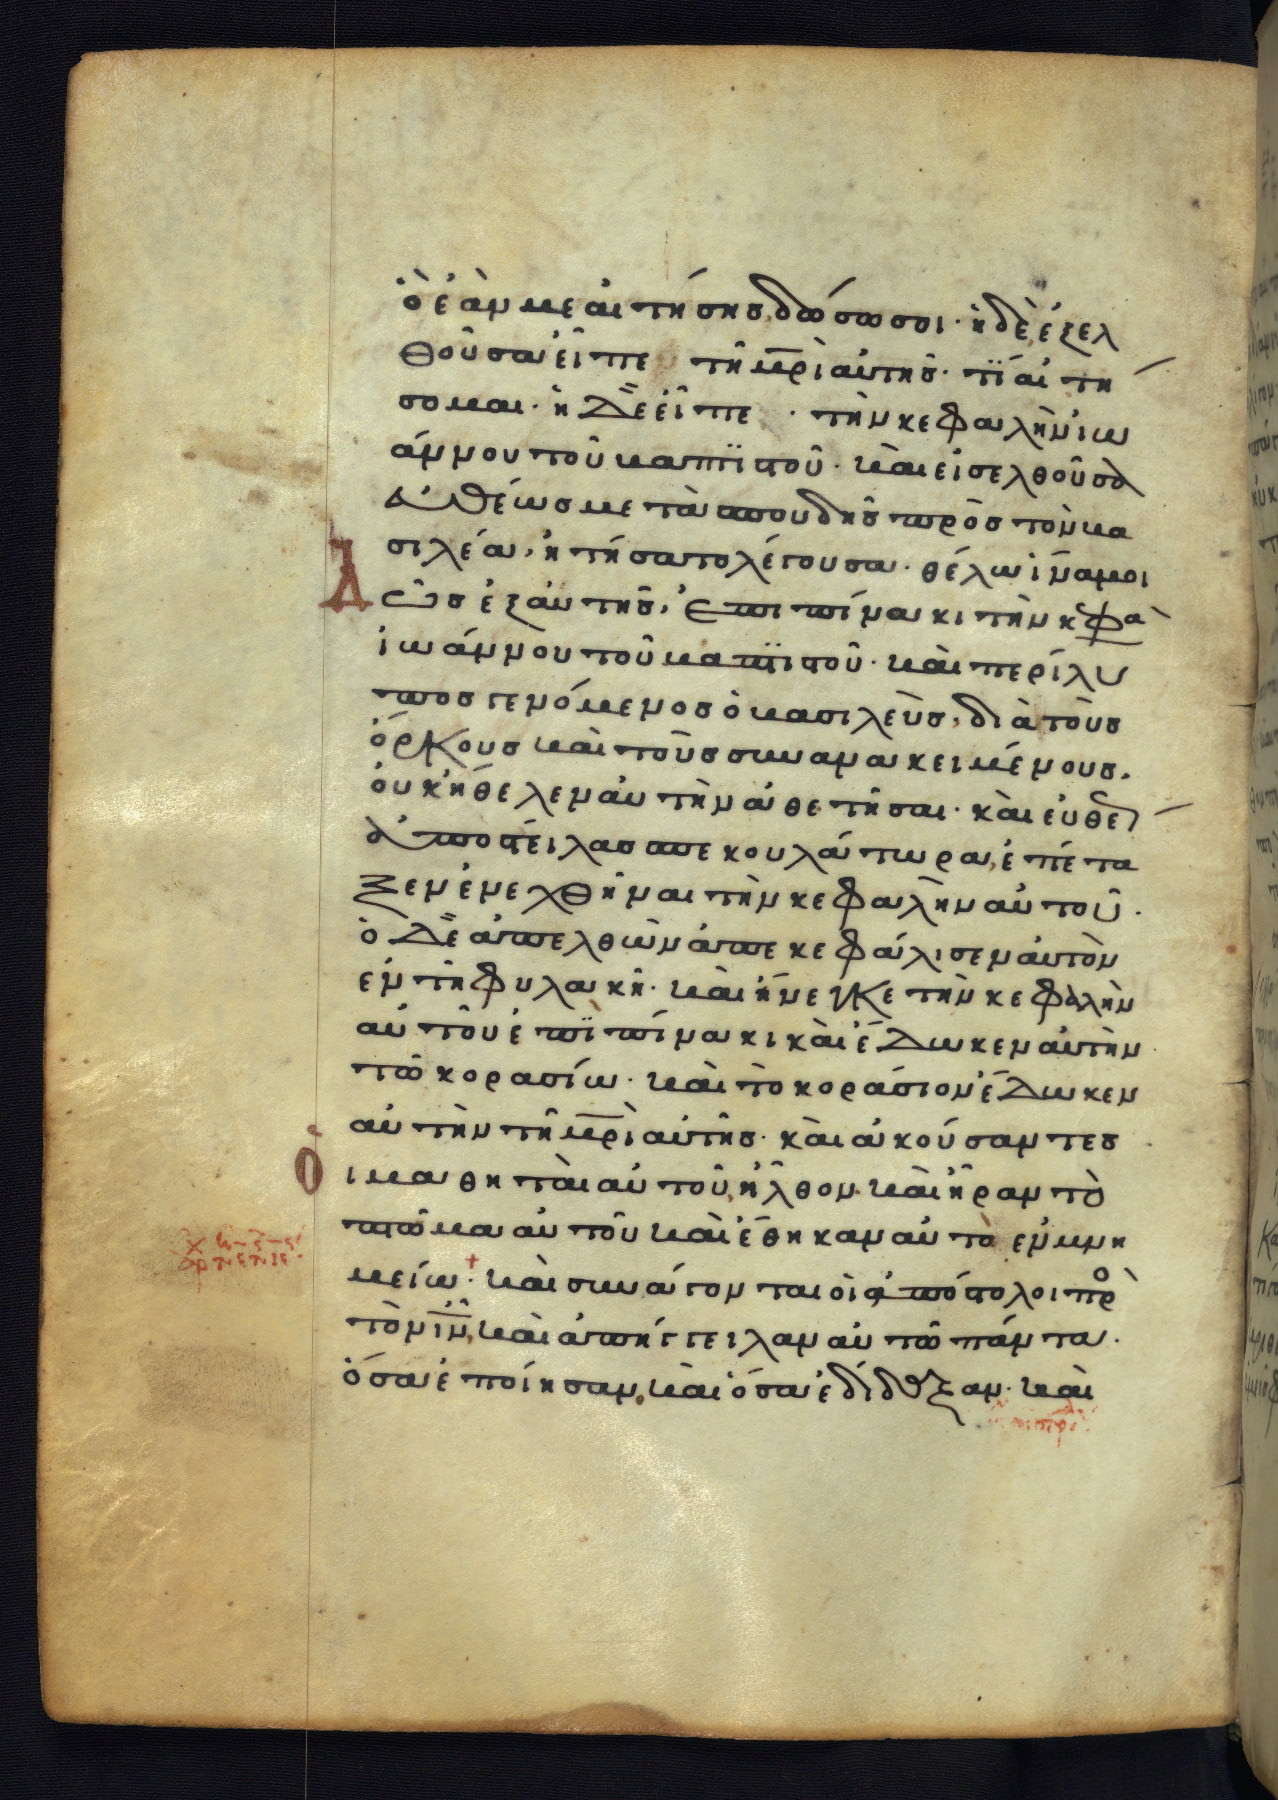 ὃ ἐάν με αἰτήσης, δώσω σοι· ἡ δὲ ἐξελ
θοῦσα εἶπε τῆ μρὶ αὐτῆς· τί αἰτή
σομαι· ἡ δὲ εἶπε· τὴν κεφαλὴν ἰω
άννου τοῦ βαπτιστοῦ· καὶ εἰσελθοῦσα
εὐθέως μετὰ σπουδῆς πρὸς τὸν βα
σιλέα, ἠτήσατο λέγουσα· θέλω ἵνα μοι
Δῶς ἐξαυτῆς, ἐπὶ πίνακι τὴν κεφα
ἰωάννου τοῦ βαπτιστοῦ· καὶ περίλυ
πος γενόμενος ὁ βασιλεὺς, διὰ τοὺς
ὅρκους καὶ τοὺς συνανακειμένους,
οὐκ ἠθέλεν αὐτὴν ἀθετῆσαι· καὶ εὐθέ
ἀποστείλας σπεκουλάτωρα, ἐπέτα
ξεν ἐνεχθῆναι τὴν κεφαλὴν αὐτοῦ·
ὁ δὲ ἀπελθὼν ἀπεκεφάλισεν αὐτὸν
ἐν τῆ φυλακῆ· καὶ ἤνεγκε τὴν κεφαλὴν
αὐτοῦ ἐπὶ πίνακι καὶ ἔδωκεν αὐτὴν
τῶ κορασίω· καὶ τὸ κοράσιον ἔδωκεν
αὐτὴν τῆ μρὶ αὐτῆς· καὶ ἀκούσαντες
Ὁι μαθηταὶ αὐτοῦ, ἦλθον· καὶ ἦραν τὸ
πτῶμα αὐτοῦ καὶ ἔθηκαν αὐτὸ ἐν μνη
μείω· καὶ συνάγονται οἱ ἀπόστολοι πρ
τὸν ιν, καὶ ἀπήγγειλαν αὐτῶ πάντα·
ὅσα ἐποίησαν, καὶ ὅσα ἐδίδαξαν· καὶ